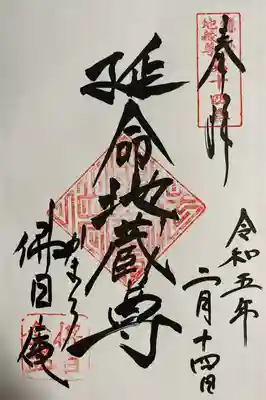 奉拝
延命地蔵尊
かまくら
佛日庵
令和五年
二月十四日